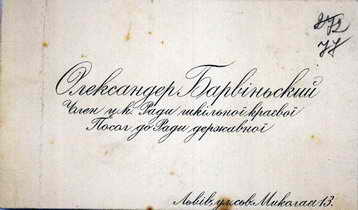 Олександер Барвіньский
Член ц.к. Ради шкільної краєвої
Посол до Ради державної
Львів, ул. св. Миколая 13.